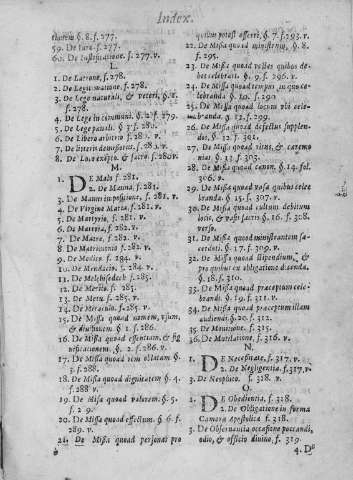 Index.
§. 8. f. 277.
59. De Iure. f. 277.
60. De Iustificatione. f. 277. v.
L.
1. De Latrone, f. 278.
2. De Legit f. 278.
3. De Lege naturali, & veteri, §. 8.
f. 278.
4. De Lege in communi. §. f. 279.
5. De Lege pœnali. §. f. 280.
6. De Libero arbitrio f. 280. v.
7. De literis f. 281.
8. De Loco & sacro. f. 280 v.
M.
1. DE Malo f. 281.
2. De Manna, f. 281.
3. De Manuum positione, f. 281. v.
4. De Virgine Maria, f. 281. v.
5. De Martyrio, f. 281. v.
6. De Materia, f. 282. v.
7. De Matre, f. 282. v.
8. De Matrimonio f. 282. v.
9. De Medico. f. 284. v.
10. De Mendacio. f. 284. v.
11. De Melchisedech f. 285.
12. De Merito. f. 285.
13. De Metu. f. 285. v.
14. De Miraculo. f. 285. v.
15. De Missa quoad nomen, usum,
& divisionem. § 1. f. 286.
16. De Missa quoad essentiam, & sig
nificationem. §. 2. f. 286. v.
17. De Missa quoad rem oblatam §.
3. f. 288.
18. De Missa quoad dignitatem §. 4.
f. 288 v.
19. De Missa quoad valorem. §. 5.
f. 2 9.
20. De Missa quoad effectum. §. 6. f.
289. v.
21. De Missa quoad personas pro
quibus potest offerri, §. 7. f. 293. v.
22. De Missa quoad ministerium, §. 8.
f. 295.
23. De Missa quoad vestes quibus de-
bet celebrari. §. 9. f. 296. v.
24. De Missa quoad tempus, in quo ce-
lebranda. §. 10. f. 290
25. De Missa quoad locum ubi cele-
branda. §. 12. f. 299.
26. De Missa quoad defectus supplen-
dos, §. f. 302.
27. De Missa quoad ritus, & cæremo-
nias §. 13 f. 303.
28. De Missa quoad canon, §. 14. fol.
306. v.
29. De Missa quoad vasa quibus cele
branda, §. 15. f. 307. v.
30. De Missa quoad cultum debitum
locis, & vasis sacris. §. 16. f. 308.
verso.
31. De Missa quoad ministrantem sa-
cerdoti. §. 17. f. 309.
32. De Missa quoad stipendium, &
pro quibus ex obligatione dicenda.
§. 18. f. 310.
33. De Missa quoad præceptum cele-
brandi. §. 19. f. 311. v.
34. De Missa quoad præceptum illam
audiendi. §. 20. f. 312.
35. De Monitione. f. 315.
36. De Mutilatione, f. 316. v.
N.
1. DE Necessitate, f. 317. v.
2. De Negligentia. f. 317. v.
3. De Neophito. f. 318. v.
O.
1. DE Obedientia, f. 318.
2. De Obligatione in forma
Camera Apostolica f. 318.
3. De Observantia, occasione peccandi,
odio, & officio divino, f. 319.
4. De